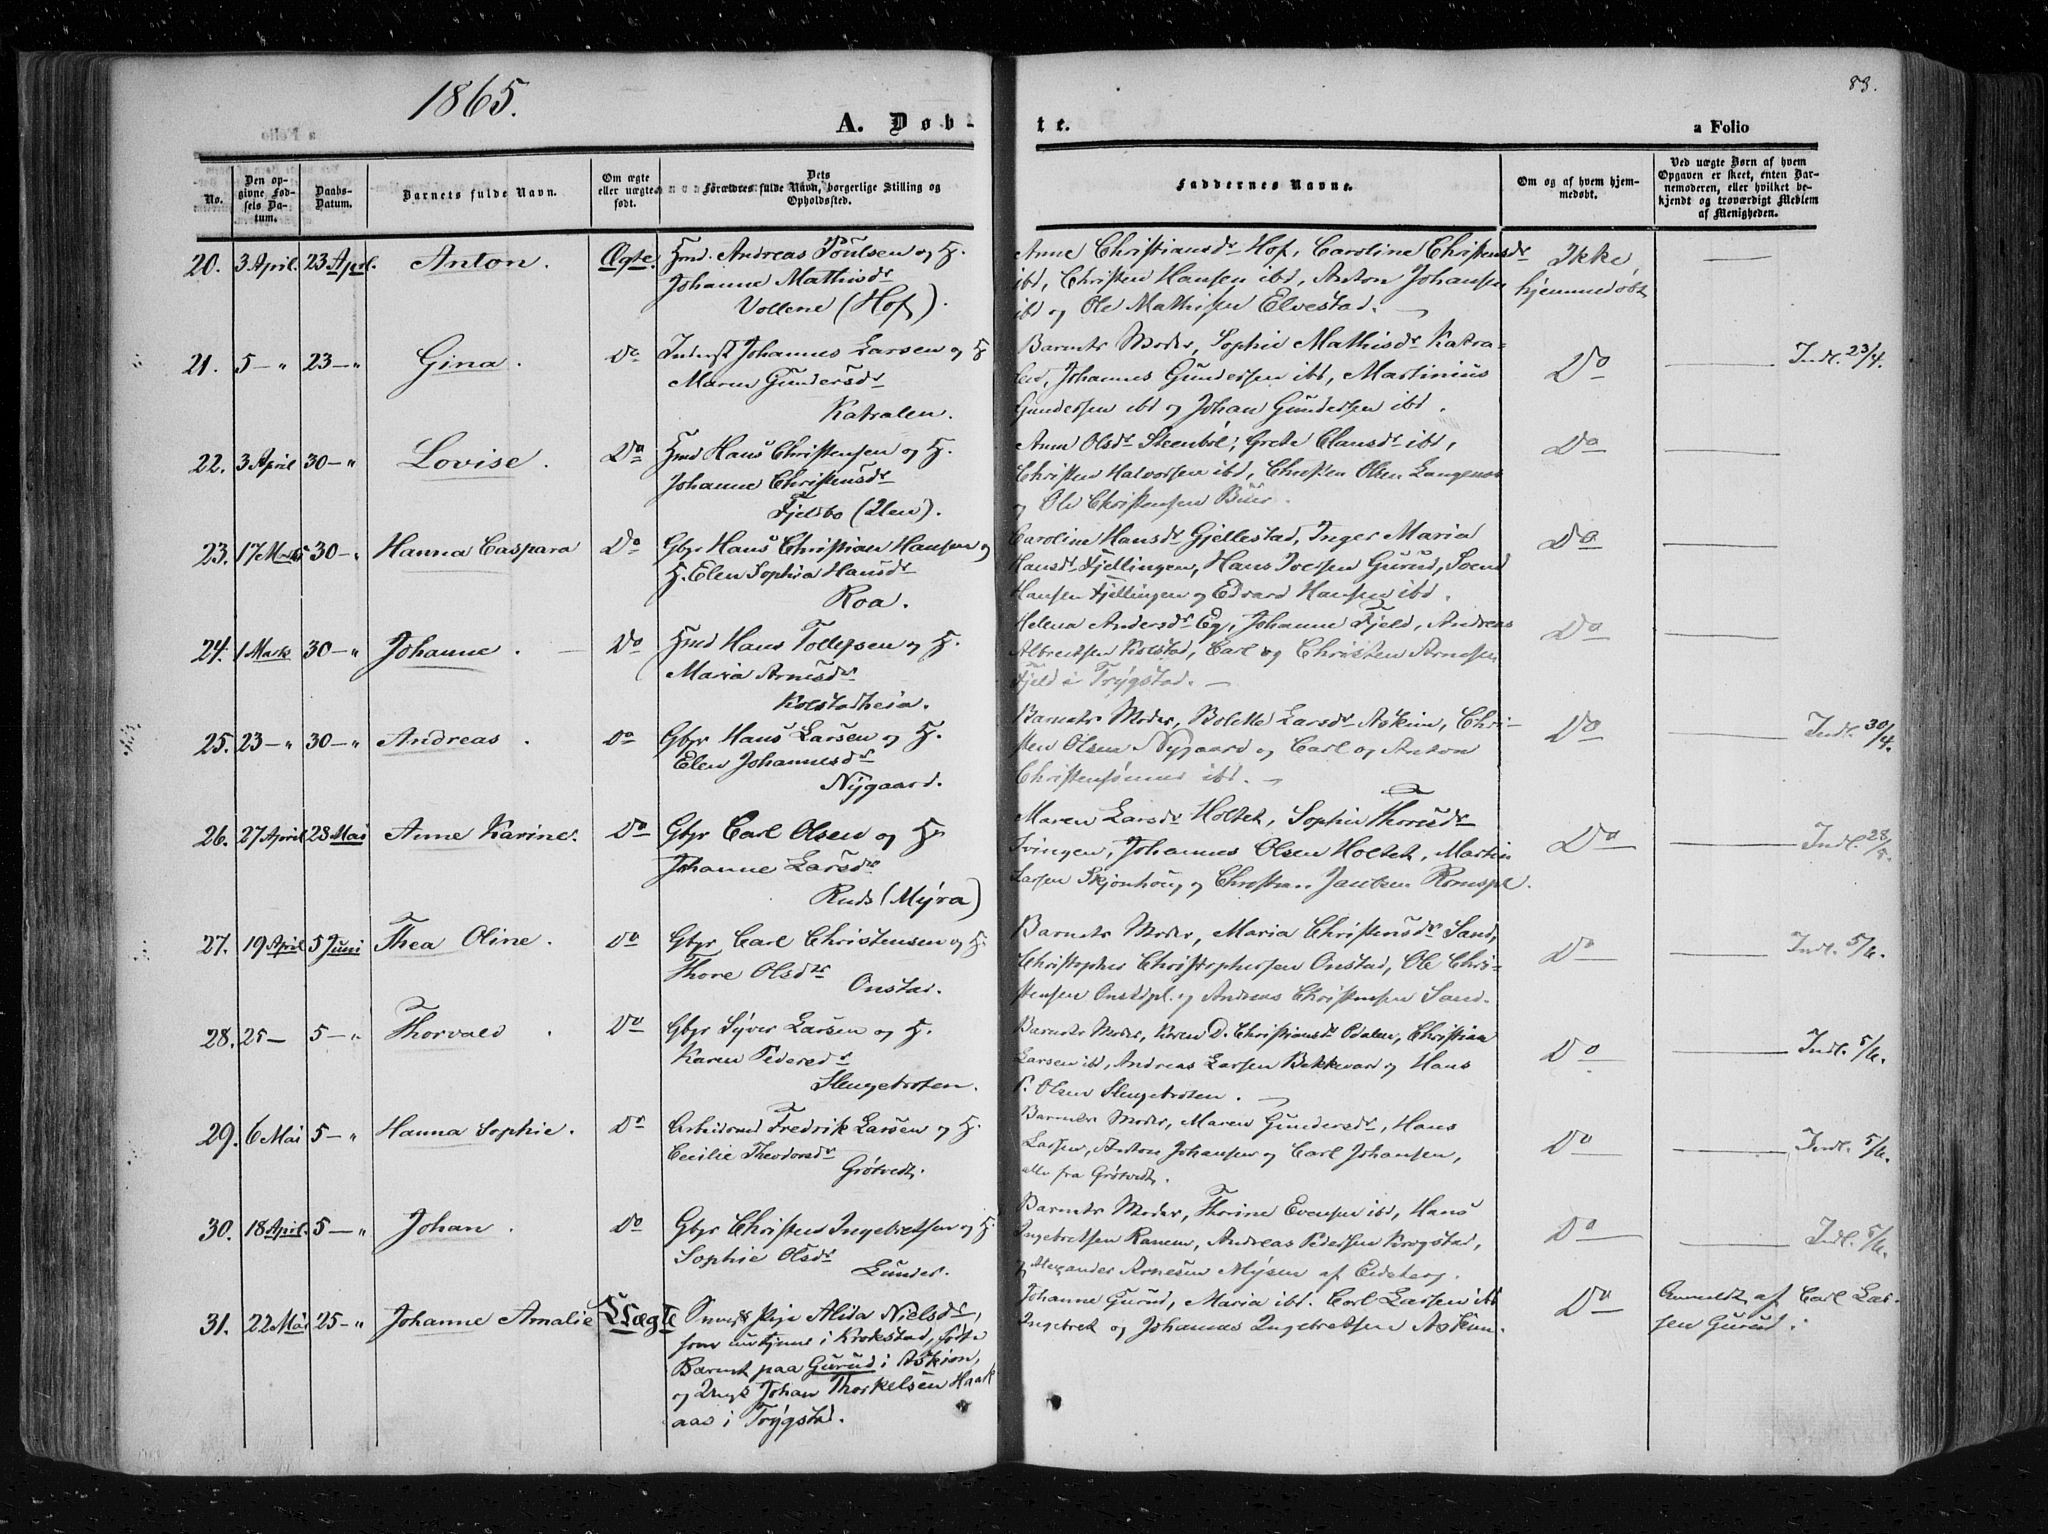 1865.
83.
A. Døb-
te.
a Folio
No.
Den op-
givne Fød-
sels Da-
tum.
Daabs-
Datum.
Barnets fulde Navn.
Om ægte
eller uægte
født.
Dets
Forældres fulde Navn, borgerlige Stilling og
Opholdssted.
Faddernes Navne.
Om og af hvem hjem-
medøbt.
Ved uægte Børn af hvem
Opgaven er skeet, enten Bar-
nemoderen, eller hvilket be-
kjendt og troværdigt Medlem
af Menigheden.
20. 3 April. 23 April. Anton. Ægte. Hmd. Andreas Poulsen og H.
Johanne Mathisdr
Vollene (Hof).
Anne Christiansdr Hof, Caroline Christensdr
ibd, Christen Hansen ibd, Anton Johansen
ibd og Ole Mathisen Elvestad.
Ikke
hjemmedøbt
21. 5 — " 23 — " Gina. Do Inderst Johannes Larsen og H
Maren Gundersdr
Katralen.
Barnets Moder, Sophie Mathisdr Katra-
len, Johannes Gundersen ibd, Martinius
Gundersen ibd og Johan Gundersen ibd.
Do
Indl. 23/4.
22. 3 April 30 — " Lovise. Do Hmd Hans Christensen og H.
Johanne Christensdr
Fjelsbo (Ulen).
Anne Olsdr Steenbøl, Grete Clausdr ibd,
Christen Halvorsen ibd, Christen Olsen Langenes
og Ole Christensen Buer.
Do
23. 17 Marts 30 — " Hanna Caspara Do Gbr Hans Christian Hansen og
H. Elen Sophia Hansdr
Roa.
Caroline Hansdr Gjellestad, Inger Maria
Hansdr Fjellingen, Hans Joelsen Gurud, Svend
Hansen Fjellingen og Edvard Hansen ibd.
Do
24. 1 Marts 30 — " Johanne. Do Hmd Hans Tollefsen og H.
Maria Arnesdr
Kolstadheia.
Helena Andersdr Eg, Johanne Fjeld, Andreas
Albretsen Kolstad, Carl og Christen Arnesen
Fjeld i Trygstad.
Do
25. 23 — " 30 — " Andreas. Do Gbr Hans Larsen og H.
Elen Johannesdr
Nygaard.
Barnets Moder, Bolette Larsdr Askim, Chri-
sten Olsen Nygaard og Carl og Anton
Christensønner ibd.
Do
Indl. 30/4.
26. 27 April 28 Mai Anne Karine. Do Gbr Carl Olsen og H.
Johanne Larsdr
Ruds (Myra)
Maren Larsdr Holtet, Sophie Thoresdr
Tvingen, Johannes Olsen Holtet, Martin
Larsen Skjønhoug og Christian Jansen Romspl.
Do
Indl. 28/5.
27. 19 April 5 Juni Thea Oline. Do Gbr Carl Christensen og H.
Thore Olsdr
Onstad.
Barnets Moder, Maria Christensdr Sand,
Christopher Christophersen Onstad, Ole Chri-
stensen Onstdpl. og Andreas Christensen Sand.
Do
Indl. 5/6.
28. 25 — 5 — " Thorvald. Do Gbr Syver Larsen og H.
Karen Pedersdr
Slengebroten.
Barnets Moder, Karen D. Christiansdr Odalen, Christian
Larsen ibd, Andreas Larsen Bekkevar og Hans
P. Olsen Slengebroten.
Do
Indl. 5/6.
29. 6 Mai 5 — " Hanna Sophie. Do Arbeidsmd Fredrik Larsen og H.
Cecilie Theodorsdr
Grøtvedt.
Barnets Moder, Maren Gundersdr, Hans
Larsen, Anton Johansen og Carl Johansen,
alle fra Grøtvedt.
Do
Indl. 5/6.
30. 18 April. 5 — " Johan. Do Gbr Christen Ingebretsen og H.
Sophie Olsdr
Lunder.
Barnets Moder, Thorine Evensen ibd, Hans
Ingebretsen Ranem, Andreas Pedersen Krogstad,
og Alexander Arnesen Mysen af Eidsberg.
Do
Indl. 5/6.
31. 22 Mai 25 — " Johanne Amalie Uægte Pige Alida Nielsdr,
som nu tjener i Krokstad, fødte
Barnet paa Gurud i Askim,
og Ungk Johan Thorkelsen Haak
aas i Trygstad.
Johanne Gurud, Maria ibd. Carl Larsen ibd
Ingebret og Johannes Ingebretsen Askim.
Do
Anmeldt af Carl Lar-
sen Gurud.